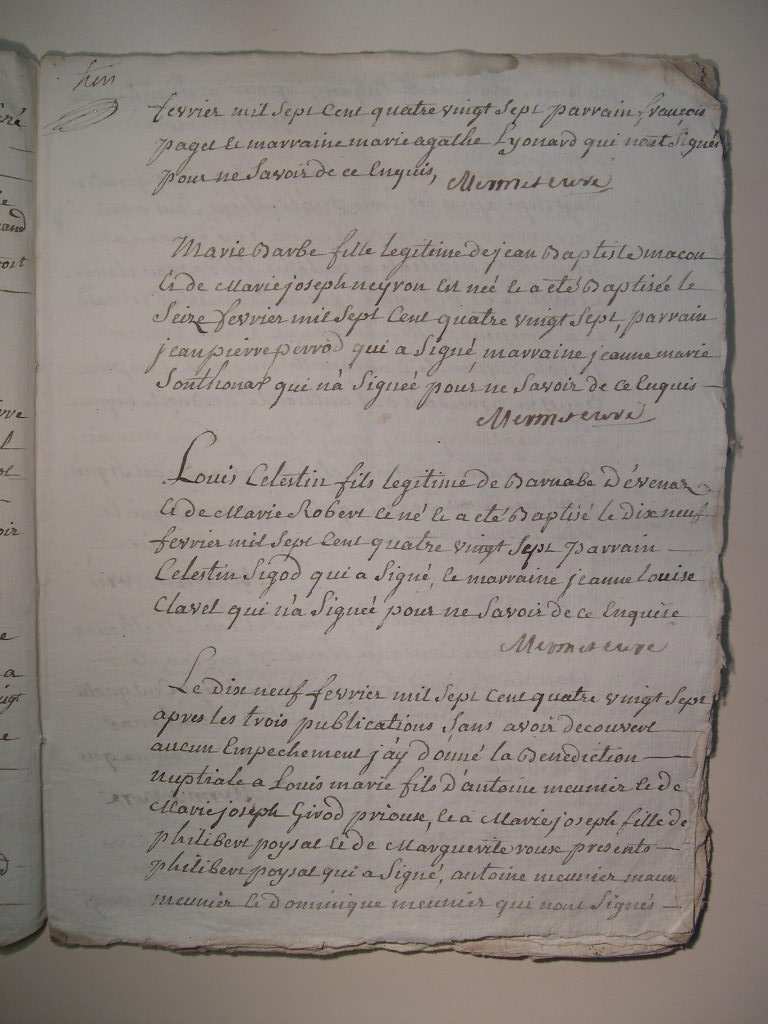 fevrier mil Sept Cent quatre vingt Sept parrain françois
paget et marraine marie agathe Lyonard qui n'ont Signés
pour ne Savoir de ce Enquis, Mermet curé
Marie Barbe fille legitime de jean Baptiste macon
Et de Marie joseph neyron Est née et a eté Baptisée le
Seize fevrier mil Sept Cent quatre vingt Sept, parrain
jean pierre perrod qui a Signé, marraine jeanne marie
Southonax qui n'a Signée pour ne Savoir de ce Enquis —
Mermet curé
Louis Celestin fils legitime de Barnabe Dévenat
Et de Marie Robert Et né et a eté Baptisé le Dix neuf
fevrier mil Sept Cent quatre vingt Sept parrain —
Celestin Sigod qui a Signé, et marraine jeanne Louise
Clavel qui n'a Signeé pour ne Savoir de ce Enquise
Mermet curé
Le Dix neuf fevrier mil Sept Cent quatre vingt Sept
apres les trois publications Sans avoir decouvert
aucun Empechement j'ay donné la Benediction —
nuptiale a Louis marie fils D'antoine meunier et de
Marie joseph Girod priouse, et a Marie joseph fille de
philibert poysat et de Marguerite roux presents —
philibert poysat qui a Signé, antoine meunier
meunier et Dominique meunier qui n'ont Signés —